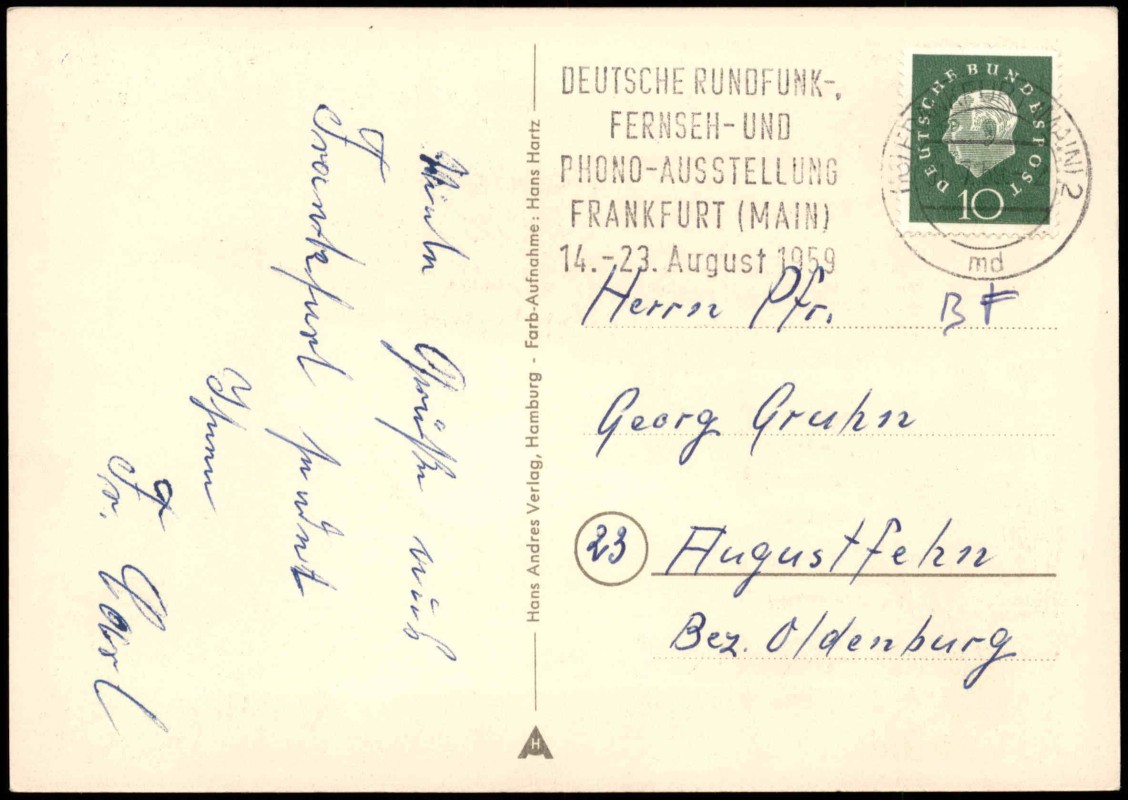 Viele Grüße aus
Frankfurt sendet
Ihnen
Fr. Carl
Hans Andres Verlag, Hamburg - Farb-Aufnahme: Hans Hartz
H
DEUTSCHE RUNDFUNK-,
FERNSEH- UND
PHONO-AUSSTELLUNG
FRANKFURT (MAIN)
14.-23. August 1959
DEUTSCHE BUNDESPOST
10
(MAIN) 2
md
Herrn Pfr.
Georg Gruhn
23 Augustfehn
Bez. Oldenburg